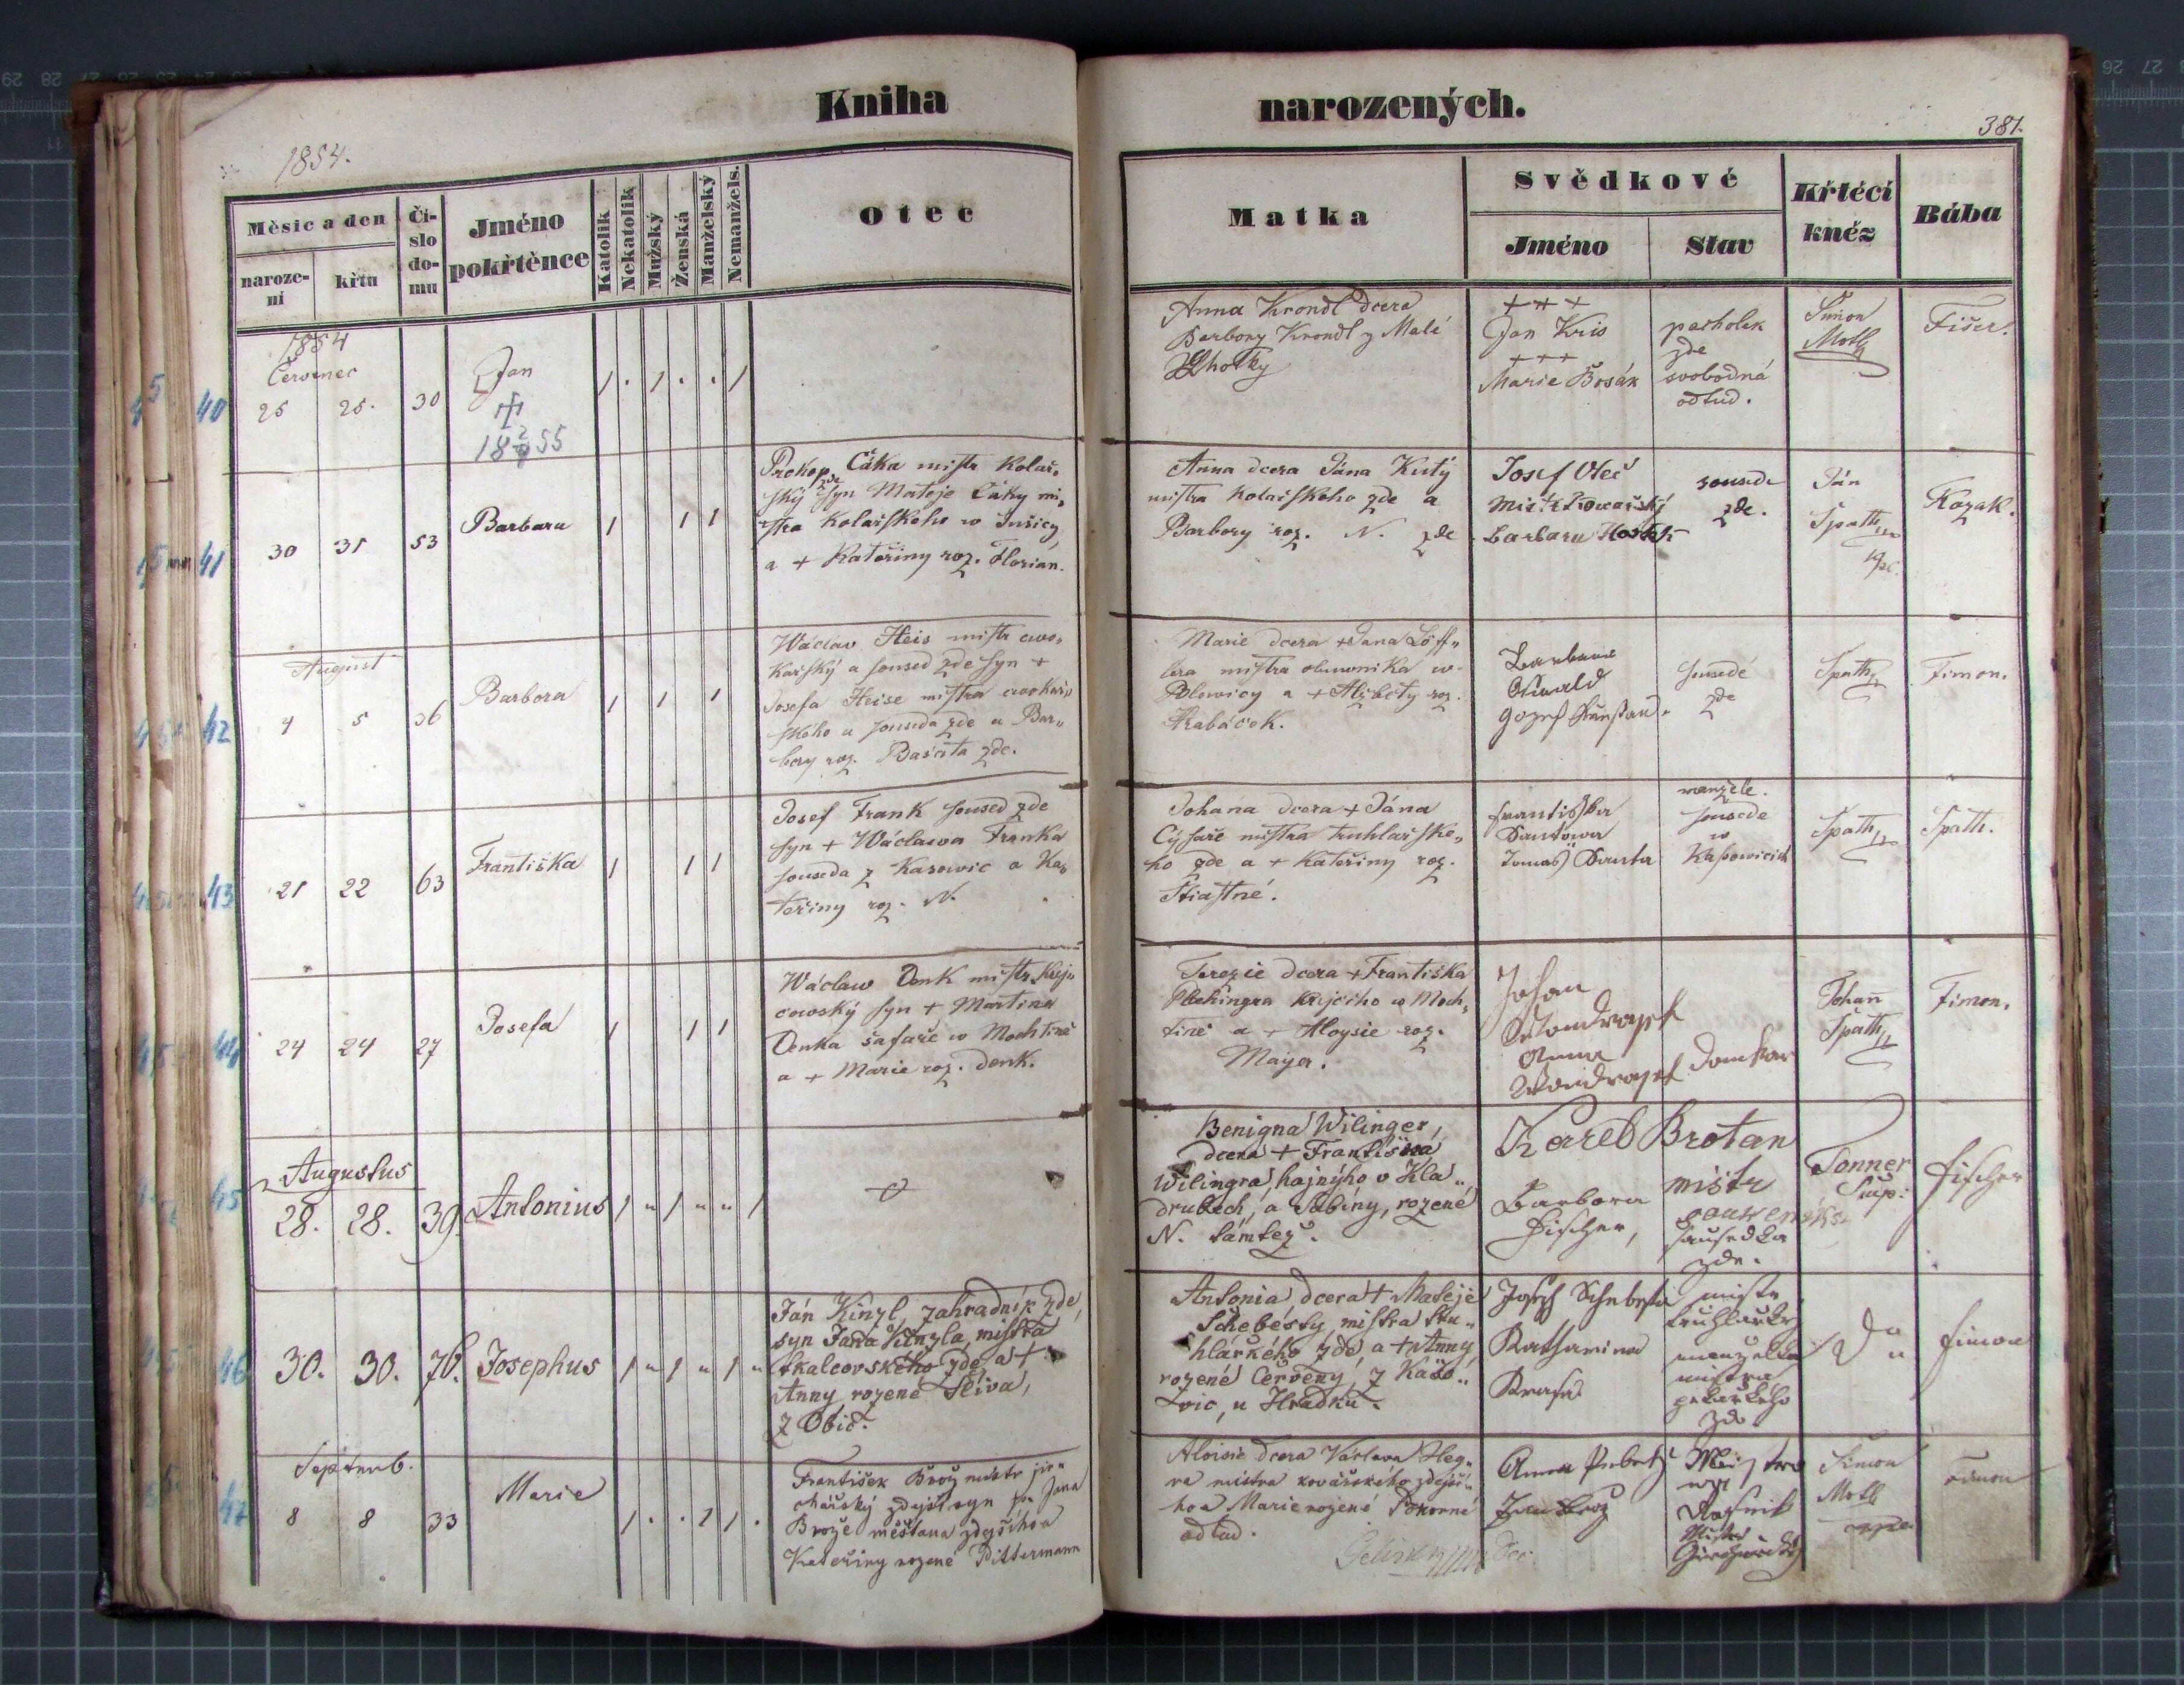 Kniha narozených.
1854.
381.
Měsíc a den
naroze-
ní
křtu
Čí-
slo
do-
mu
Jméno
pokřtěnce
Katolík
Nekatolík
Mužský
Ženská
Manželský
Nemanžels.
Otec
Matka
Svědkové
Jméno
Stav
Křtécí
kněz
Bába
1854
Červenec
40
25 25. 30
Jan
1855
Anna Krondl dcera
Barbory Krondl z Malé
Lhotky
+++
Jan Kris
+++
Marie Bosák
pacholek
zde
svobodná
odtud.
Simon
Motl
Fišer.
41
30 31 53
Barbara
Prokop Čáka mistr kolař-
ský zde syn Matěje Čáky mi-
stra kolařského w Sušicy,
a + Kateřiny roz. Florián.
Anna dcera Jána Kutý
mistra kolařského zde a
Barbory roz. N. zde
Josef Oteč
Barbara
sousede
zde.
Ján
Spath
Kozak.
August
42
4 5 36
Barbora
Wáclaw Heis mistr cwo-
kařský a soused zde syn +
Josefa Heise mistra cwokař-
ského a souseda zde a Bar-
bory roz. Baščta zde.
Marie dcera + Jana Löff-
lera mistra w
a + Alžběty roz.
Hrabáček.
Barbara
Oswald
sousedé
zde
Spath
Fimon.
43
21 22 63
Františka
Josef Frank soused zde
syn + Wáclawa Franka
souseda z Kasowic a Ka-
teřiny roz. N.
Johana dcera + Jána
Cýsaře mistra truhlařské-
ho zde a + Kateřiny roz.
Stiastné.
Františka
Santowa
Tomas Santa
manzele.
sousede
w
Kasowicich
Spath
Spath.
44
24 24 27
Josefa
Wáclaw Denk mistr krej-
cowský syn + Martina
Denka šafaře w Mochtíně
a + Marie roz. Denk.
Terezie dcera + Františka
Plehingra krejcího w Moch-
tině a + Aloysie roz.
Mayer.
Johan
Anna
Johan
Spath
Fimon.
Augustus
45
28. 28. 39.
Antonius
Benigna Wilinger,
dcera + Františka
Wilingra, hajnýho v Kla-
drubech, a Sabíny, rozené
N. támtéž.
Karel Brotan
mistr
Barbora
Fischer,
sousedka
zde.
Tonner
Sup:
Fischer
46
30. 30. 76.
Josephus
Ján Kinzl, zahradník zde,
syn Jana Kinzla, mistra
tkalcovského zde, a +
Anny rozené Sliva,
z Obic.
Antonia dcera + Matěje
Schebesty, mistra tru-
hlarkého zde, a + Anny,
rozené Červený, z Kaso-
wic, u Hradku.
Joseph Schebesta
Katharina
Krasa
mistr
truhlarky
manzelka
mistra
pekarkeho
zde
Fimon
Septemb.
47
8 8 33
Marie
František Brož mistr jir-
chářský zdejší, syn Jana
Brože měštana zdejšího a
Kateřiny rozené Pittermann
Aloisie dcera Václava Heg-
ra mistra kovářského zdejší-
ho a Marie rozené Pokorné
odtud.
Anna
Jan Brož
Simon
Motl
Fimon